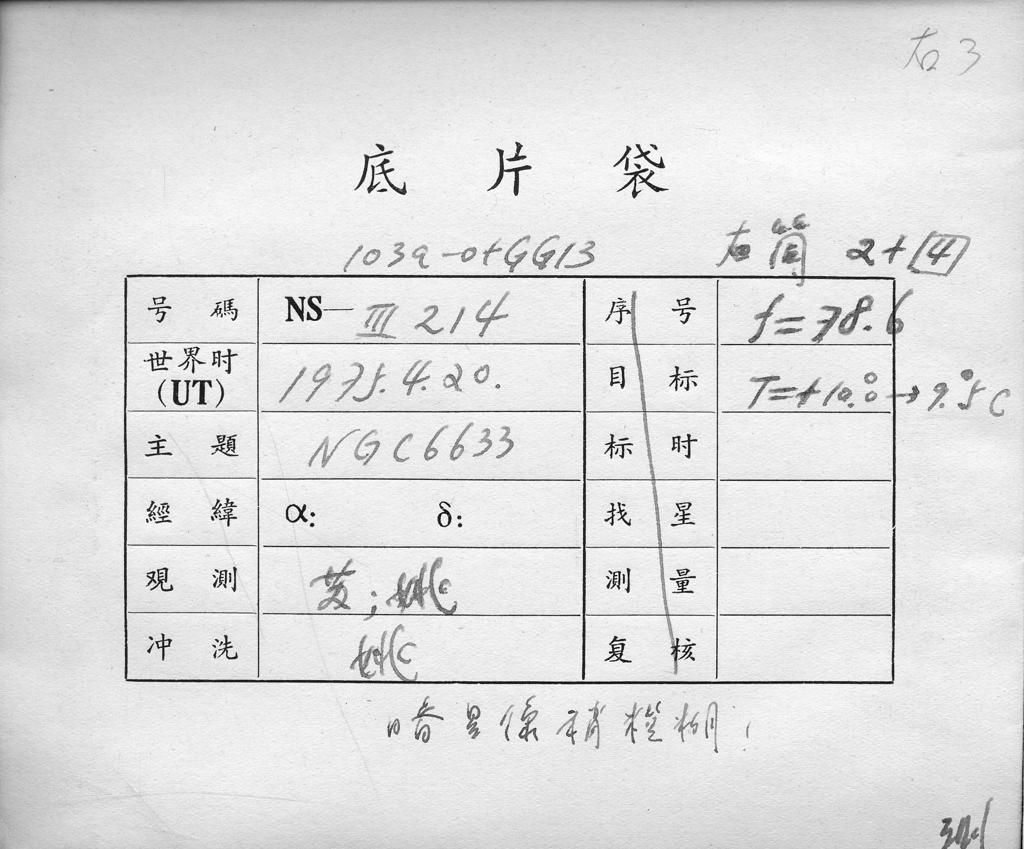 右3
底片袋
103a-o+GG13 右筒 2+4
号碼 NS—III 214 序号 f=78.6
世界时(UT) 1975.4.20. 目标 T=+10.°0→9.°5C
主題 NGC6633 标时
經緯 α: δ: 找星
观測 ;姚 測量
冲洗 姚 复核
暗星像稍模糊!